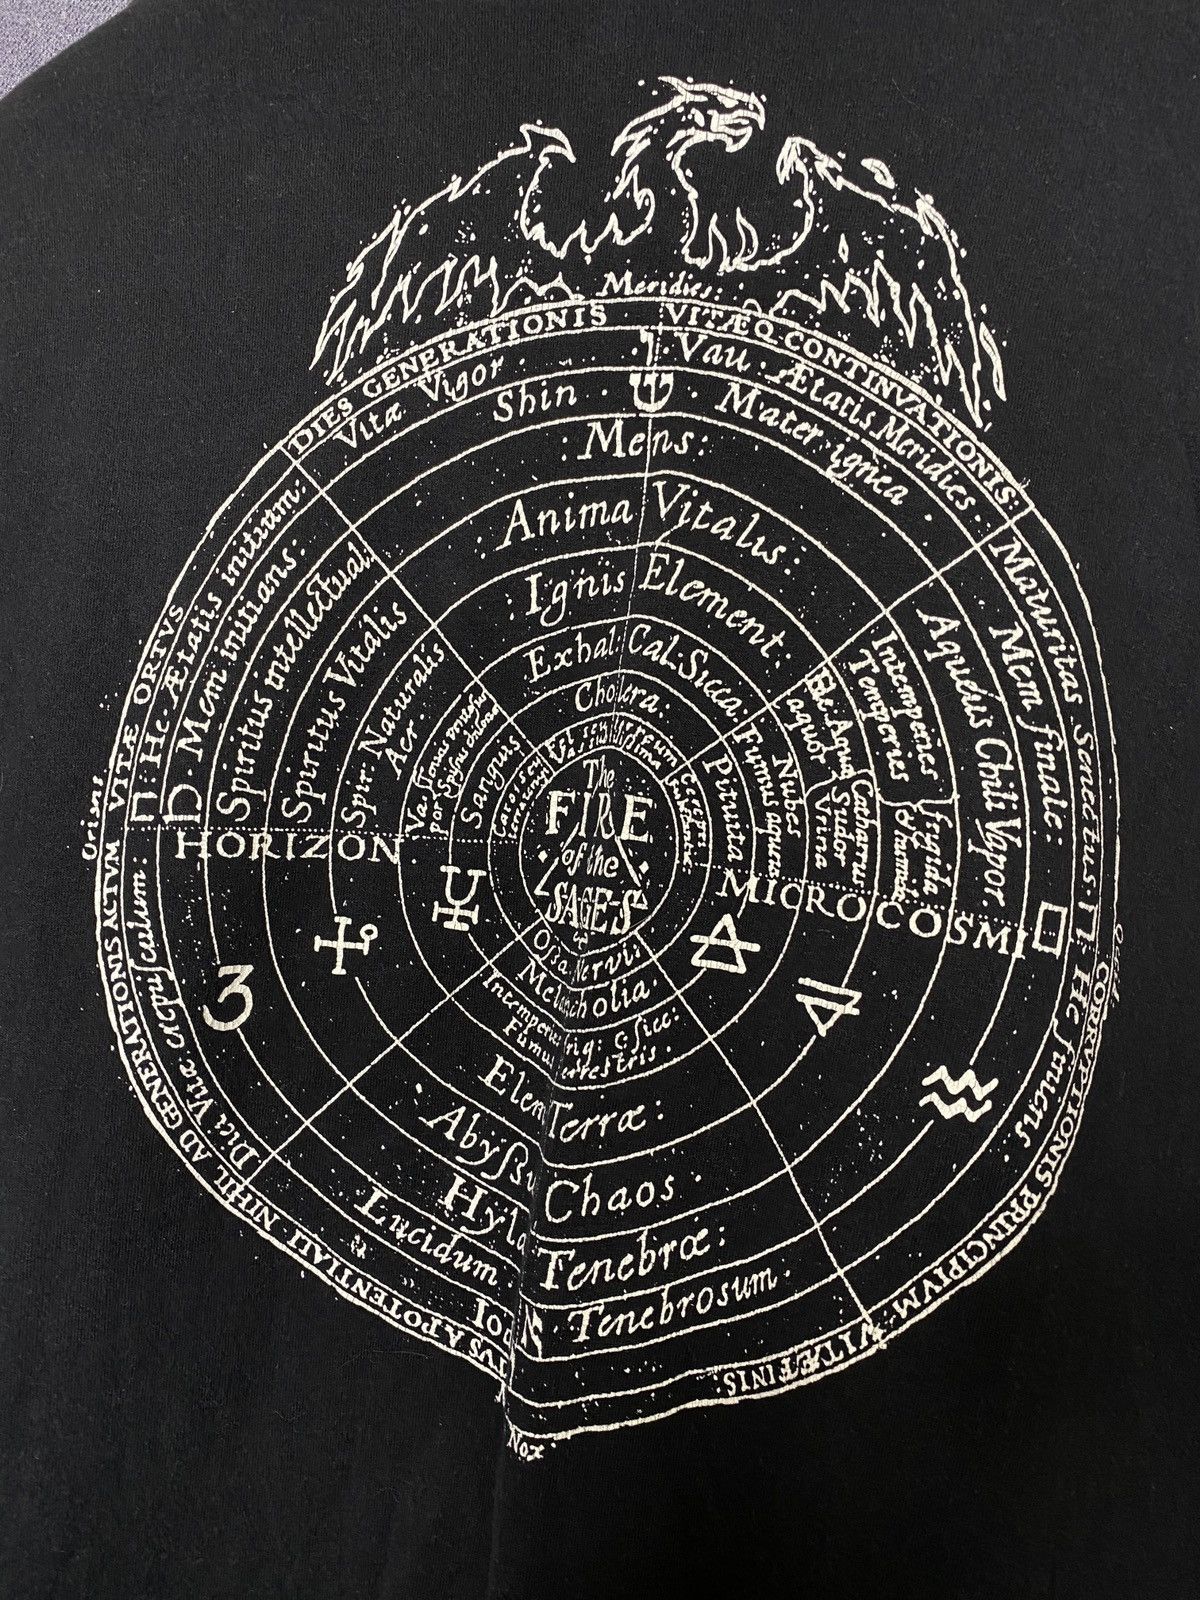 Meridies:
DIES GENERATIONIS
VITÆQ CONTINVATIONIS
Vitæ Vigor
Vau · Ætatis Meridies
Shin
Mater ignea
Mens:
Anima Vitalis:
Ignis Element:
Exhal: Cal: Sicca:
Cholera:
The
FIRE
of the
SAGES
Oriens
VITÆ ORTVS
He · Ætatis initium:
Mem initians:
Spiritus intellectual:
Spirutus Vitalis
Spir: Naturalis
Aer
Va
por
Sanguis
HORIZON
Maturitas Senectus:
Mem finale:
Aqueus Chili Vapor
Intemperies
Temperies
frigida
Ele: Aqua
aquor
Catharrus
Sudor
Vrina
Nubes
Fumus aqueus
Pituita
MICRO COSMI
He finiens:
CORRVPTIONIS PRUNCIPIVM
VITÆ FINIS
GENERATIONIS ACTVM
Diei Vitæ crepusculum:
NIHIL AD GENERATIONIS
TVS A POTENTIALI
Ossa Nervis
Melancholia
Fumus terrestris
Elem Terræ:
Chaos
Hyla Tenebræ:
Lucidum Tenebrosum
Nox